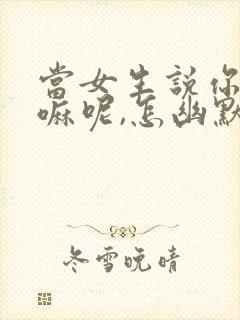 當女生說你
嘛呢,怎幽默
冬雪晚晴